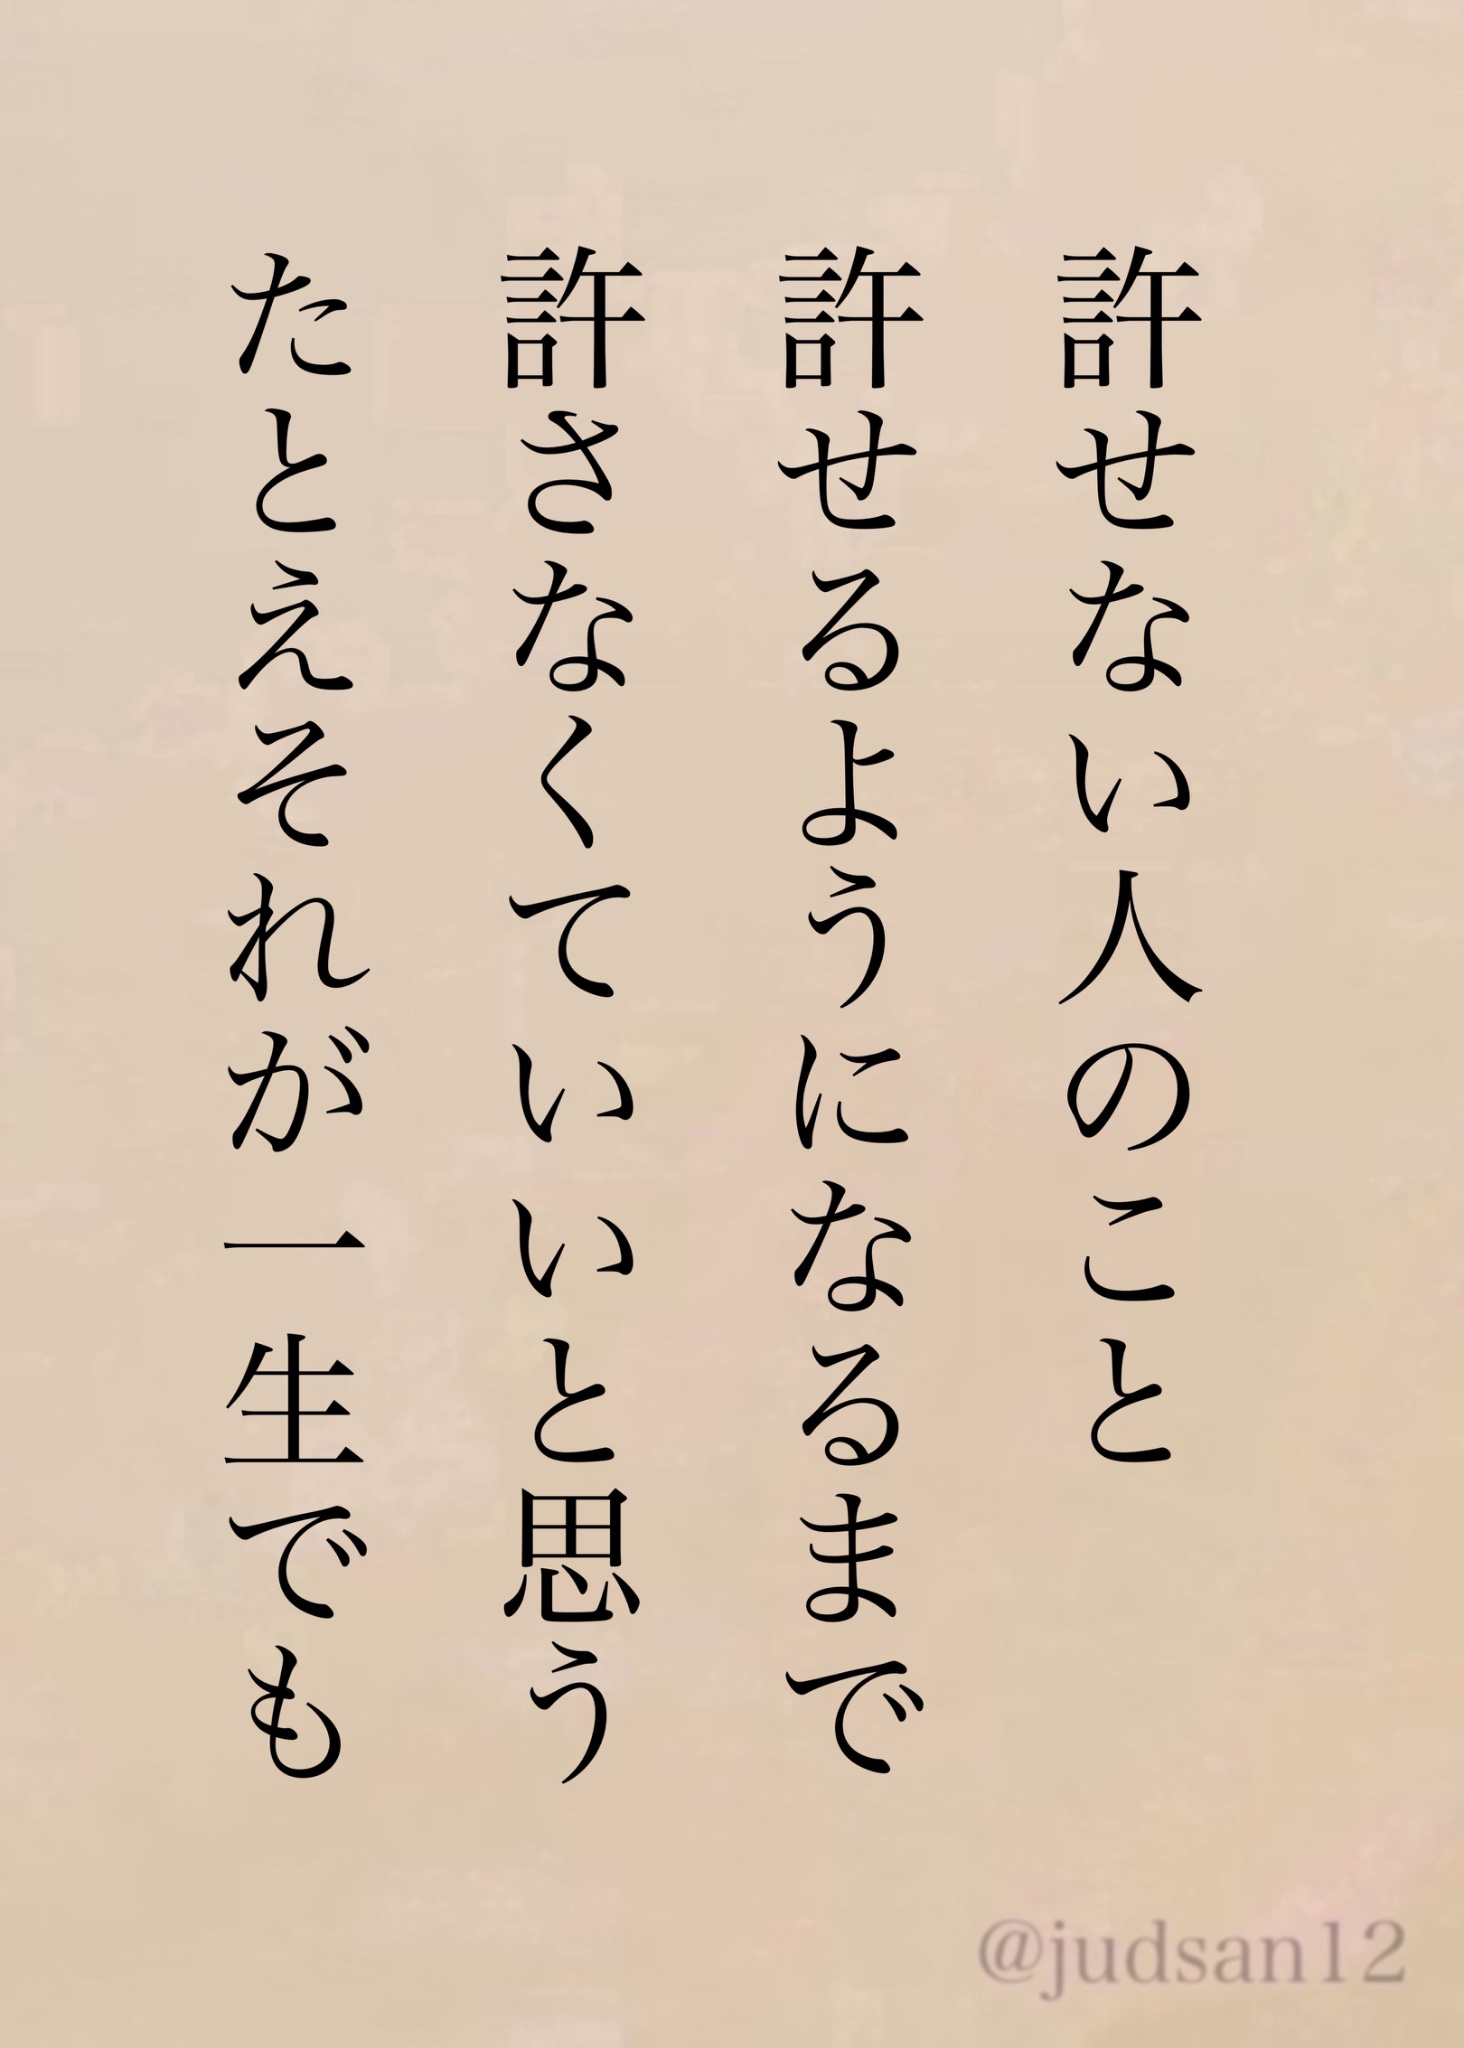 許せない人のこと
許せるようになるまで
許さなくていいと思う
たとえそれが一生でも
@judsan12